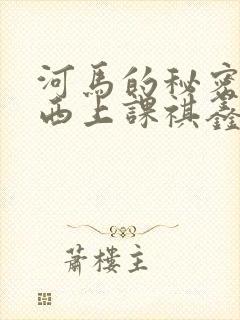 河馬的秘密
西上課祺鑫
蕭樓主